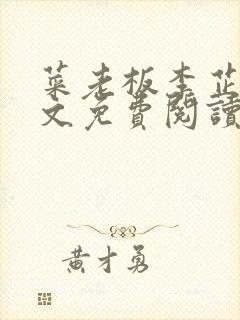 菜老板李芷
文免費閱讀
黄才勇